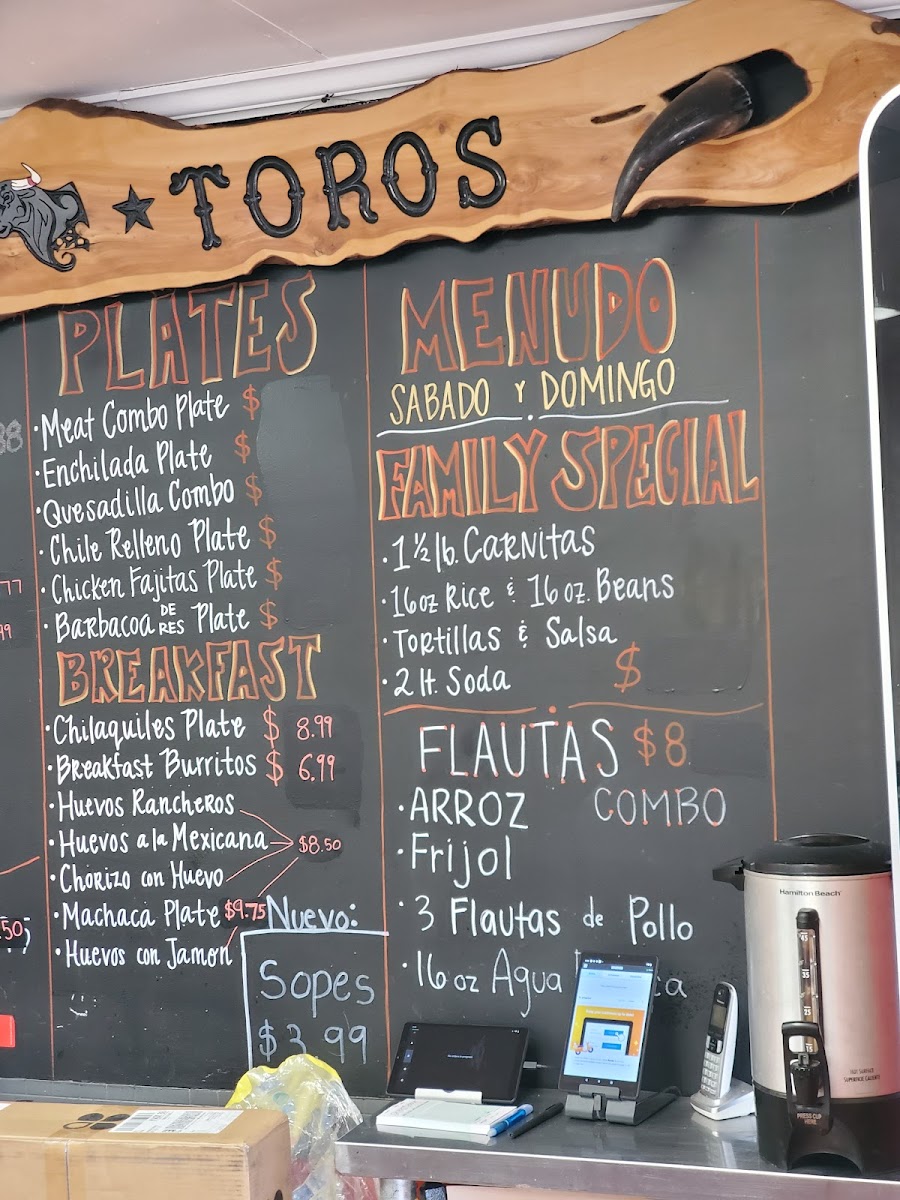 TOROS
PLATES
·Meat Combo Plate $
·Enchilada Plate $
·Quesadilla Combo $
·Chile Relleno Plate $
·Chicken Fajitas Plate $
·Barbacoa DE RES Plate $
BREAKFAST
·Chilaquiles Plate $ 8.99
·Breakfast Burritos $ 6.99
·Huevos Rancheros
·Huevos a la Mexicana $8.50
·Chorizo con Huevo
·Machaca Plate $9.75
·Huevos con Jamon
Nuevo:
Sopes
$3.99
MENUDO
SABADO Y DOMINGO
FAMILY SPECIAL
·1 ½ lb. Carnitas
·16oz Rice & 16 oz. Beans
·Tortillas & Salsa
·2 lt. Soda $
FLAUTAS $8
COMBO
·ARROZ
·Frijol
·3 Flautas de Pollo
·16 oz Agua
Hamilton Beach
HOT SURFACE
SUPERFICIE CALIENTE
PRESS CUP
HERE